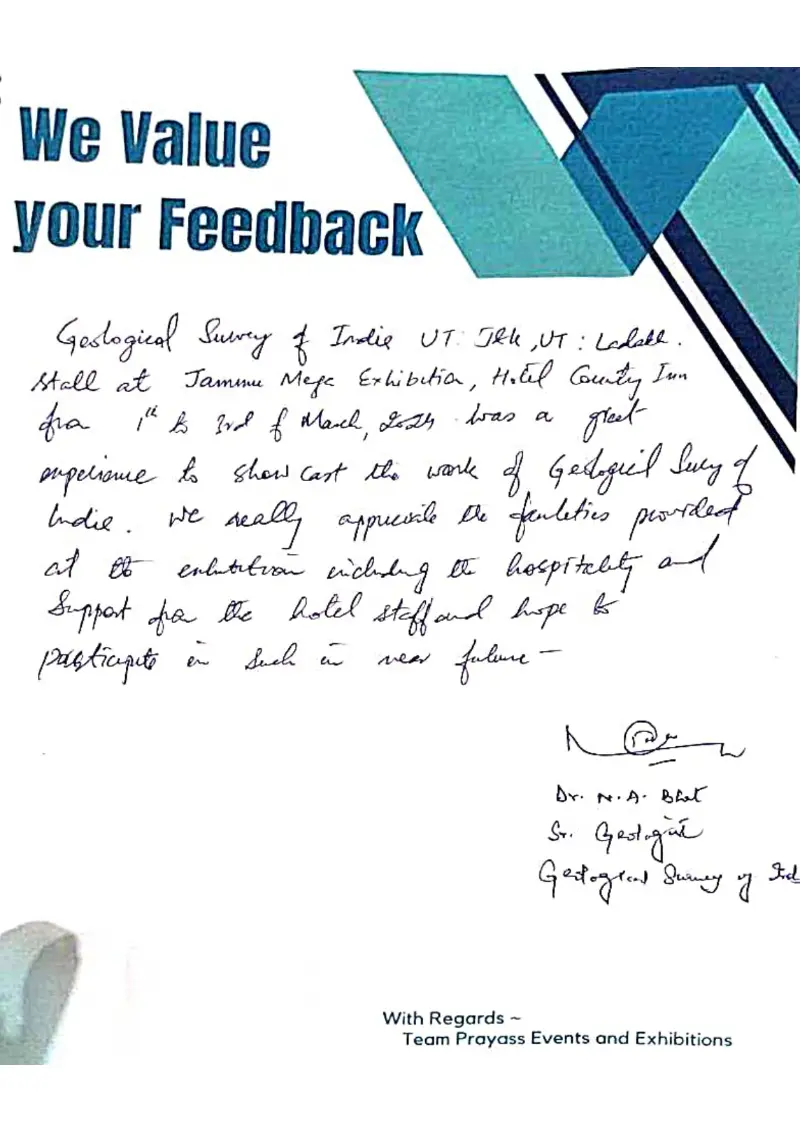 We Value
your Feedback
Geological Survey of India UT: J&k, UT: Ladakh.
stall at Jammu Mega Exhibition, Hotel County Inn
from 1th to 3rd of March, 2024 was a great
experience to show cast the work of Geological Survey of
India. We really appreciate the facilities provided
at the exhibition including the hospitality and
Support from the hotel staff and hope to
participate in such in near future —
Dr. N. A. Bhat
Sr. Geologist
Geological Survey of Ind
With Regards ~
Team Prayass Events and Exhibitions